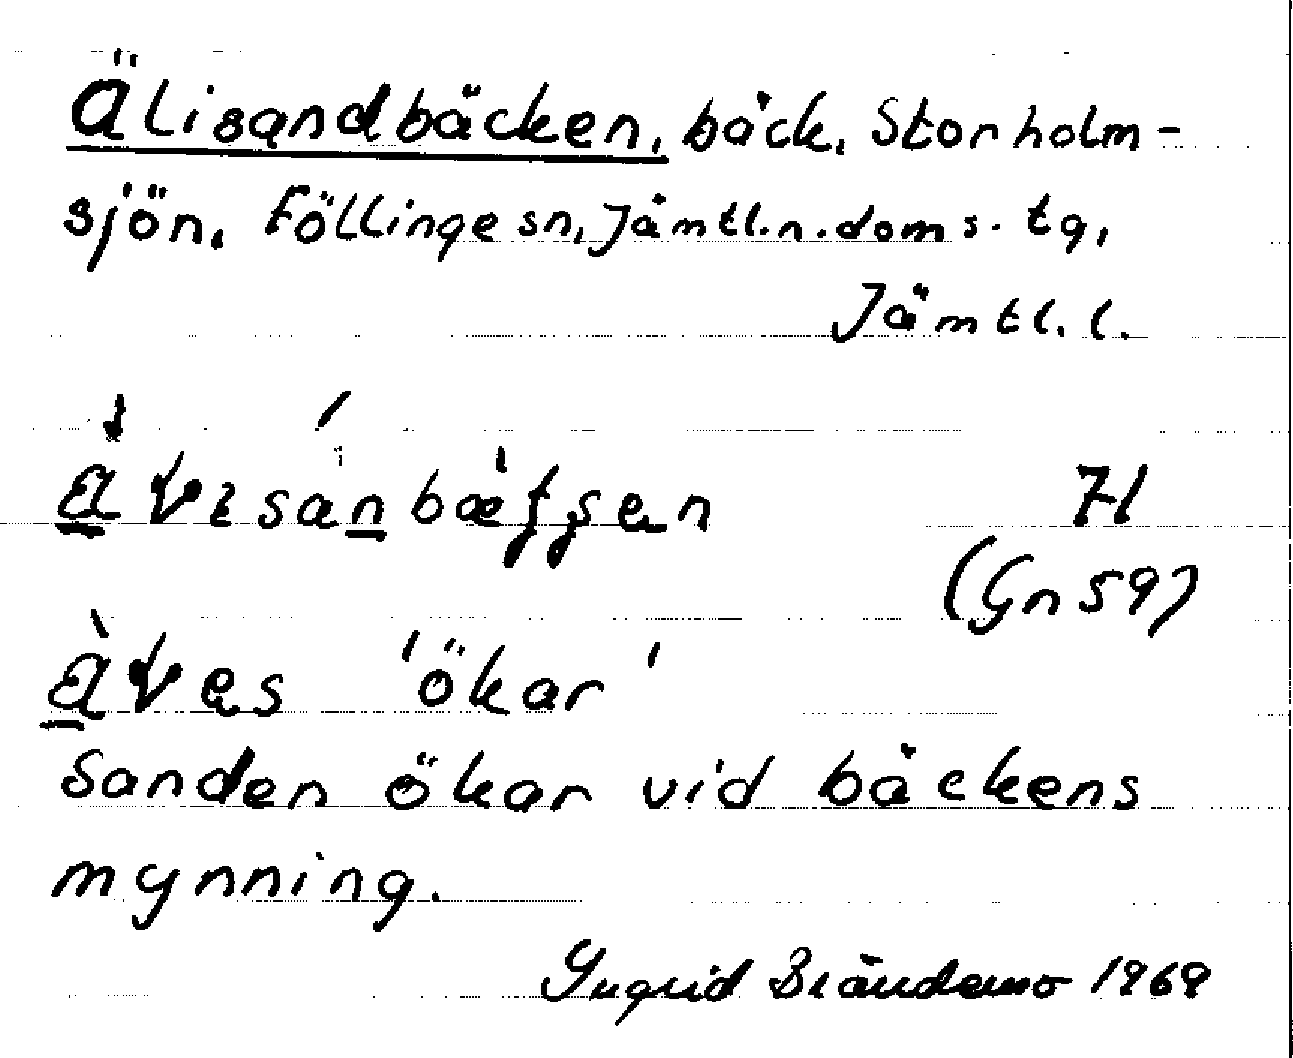 Älisandbäcken, bäck, Storholm-
sjön, Föllinge sn, Jämtl.n.doms.tg,
Jämtl.l.
H
(Gn 59)
'ökar'
Sanden ökar vid bäckens
mynning.
Ingrid Brändemo 1969